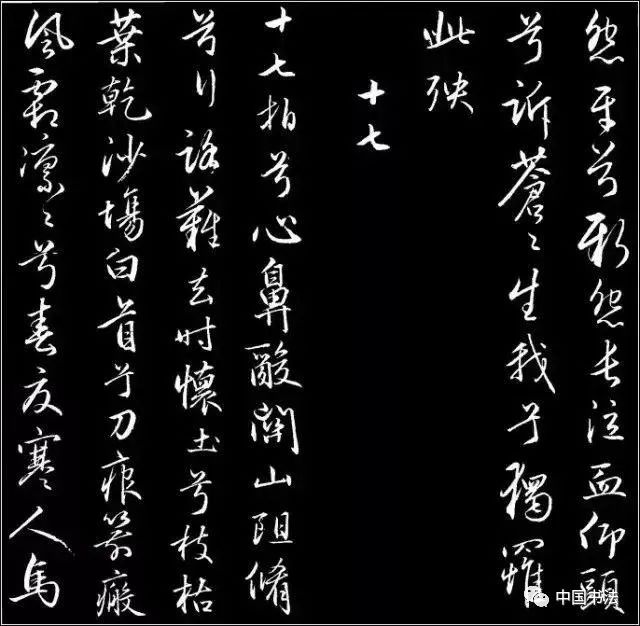 怨平兮新怨長泣血仰頭
兮訴蒼〻生我兮獨罹
此殃
十七
十七拍兮心鼻酸關山阻脩
兮行路難去时懷土兮枝枯
葉乾沙塲白首兮刀痕箭瘢
風霜凛〻兮春夏寒人馬
中国书法